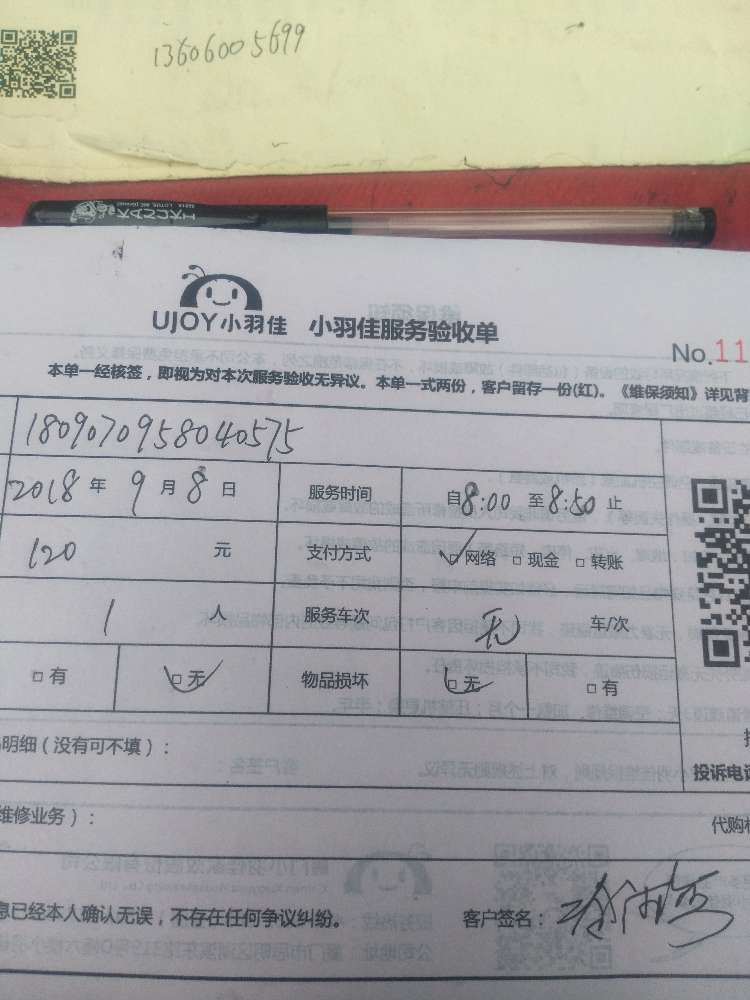 13606005699
KANUKI
UJOY小羽佳 小羽佳服务验收单
No.11
本单一经核签，即视为对本次服务验收无异议。本单一式两份，客户留存一份(红)。《维保须知》详见背
1809070958040575
2018年 9月 8日 服务时间 自8:00 至8:50 止
120 元 支付方式 网络 现金 转账
1 人 服务车次 无 车/次
有 无 物品损坏 无 有
明细（没有可不填）：
投诉电
维修业务）：
代购
息已经本人确认无误，不存在任何争议纠纷。 客户签名：